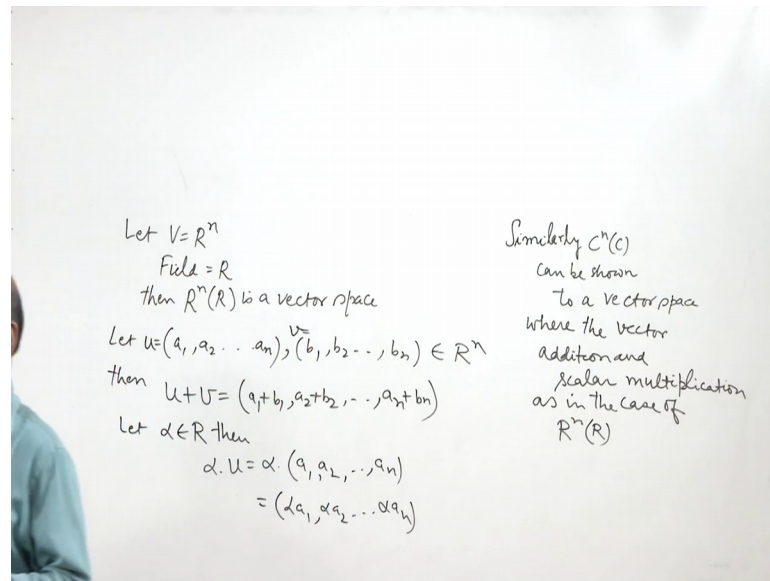 Let V=Rⁿ
Field = R
then Rⁿ(R) is a vector space
Let u=(a₁,a₂...an), v=(b₁,b₂--,bn) ∈ Rⁿ
then u+v=(a₁+b₁,a₂+b₂,--,an+bn)
Let α∈R then
α.u=α.(a₁,a₂,..,an)
=(αa₁,αa₂...αan)
Similarly Cⁿ(C)
can be shown
to a vector space
where the vector
addition and
scalar multiplication
as in the case of
Rⁿ(R)